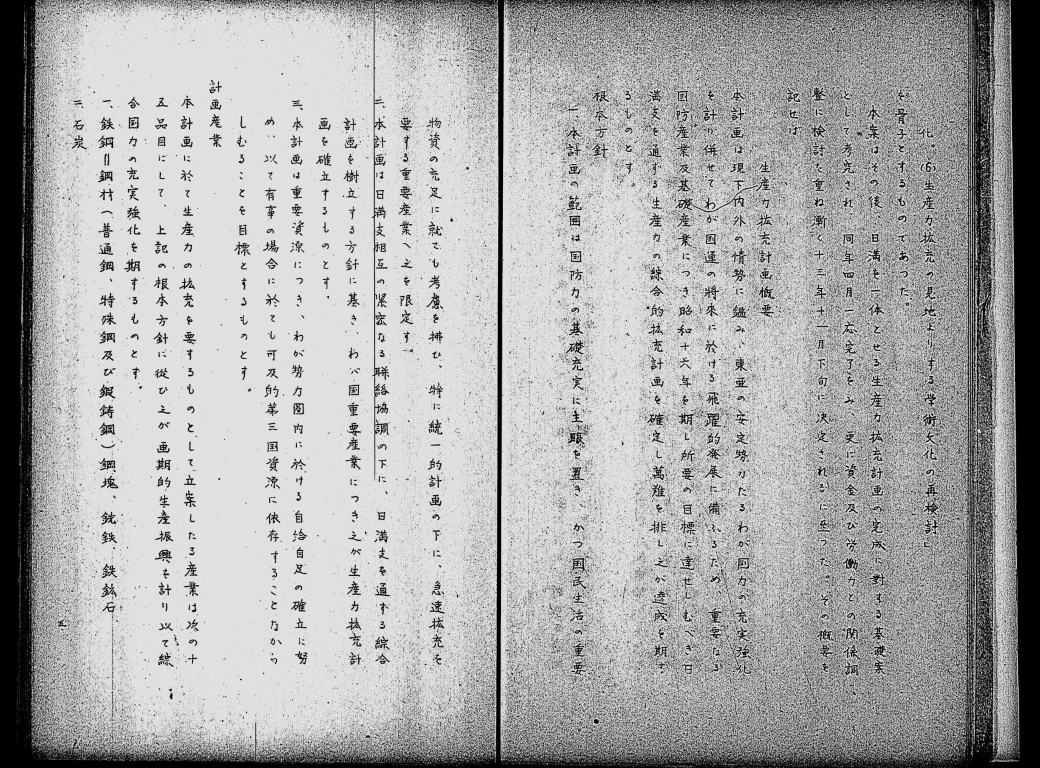 化。(6)生産力拡充の見地よりする学術文化の再検討」
を骨子とするものであつた。
本案はその後、日満を一体とせる生産力拡充計画の完成に対する基礎案
として考究され、同年四月一応完了をみ、更に資金及び労働力との関係調
整に検討を重ね漸く十三年十一月下旬に決定されるに至つた。その概要を
記せば
生産力拡充計画概要
本計画は現下内外の情勢に鑑み、東亜の安定勢力たるわが国力の充実強化
を計り併せてわが国運の将来に於ける飛躍的発展に備ふるため、重要なる
国防産業及基礎産業につき昭和十六年を期し所要の目標に達せしむべき日
満支を通ずる生産力の綜合的拡充計画を確定し萬難を排し之が達成を期す
るものとす。
根本方針
一、本計画の範囲は国防力の基礎充実に主眼を置き、かつ国民生活の重要
物資の充足に就ても考慮を拂ひ、特に統一的計画の下に、急速拡充を
要する重要産業へ之を限定す。
二、本計画は日満支相互の緊密なる聯絡協調の下に、日満支を通ずる綜合
計画を樹立する方針に基き、わが国重要産業につき之が生産力拡充計
画を確立するものとす。
三、本計画は重要資源につき、わが勢力圏内に於ける自給自足の確立に努
め、以て有事の場合に於ても可及的第三国資源に依存することなから
しむることを目標とするものとす。
計画産業
本計画に於て生産力の拡充を要するものとして立案したる産業は次の十
五品目にして、上記の根本方針に従ひ之が画期的生産振興を計り以て綜
合国力の充実強化を期するものとす。
一、鉄鋼=鋼材(普通鋼、特殊鋼及び鍛鋳鋼)鋼塊、銑鉄、鉄鉱石
二、石炭